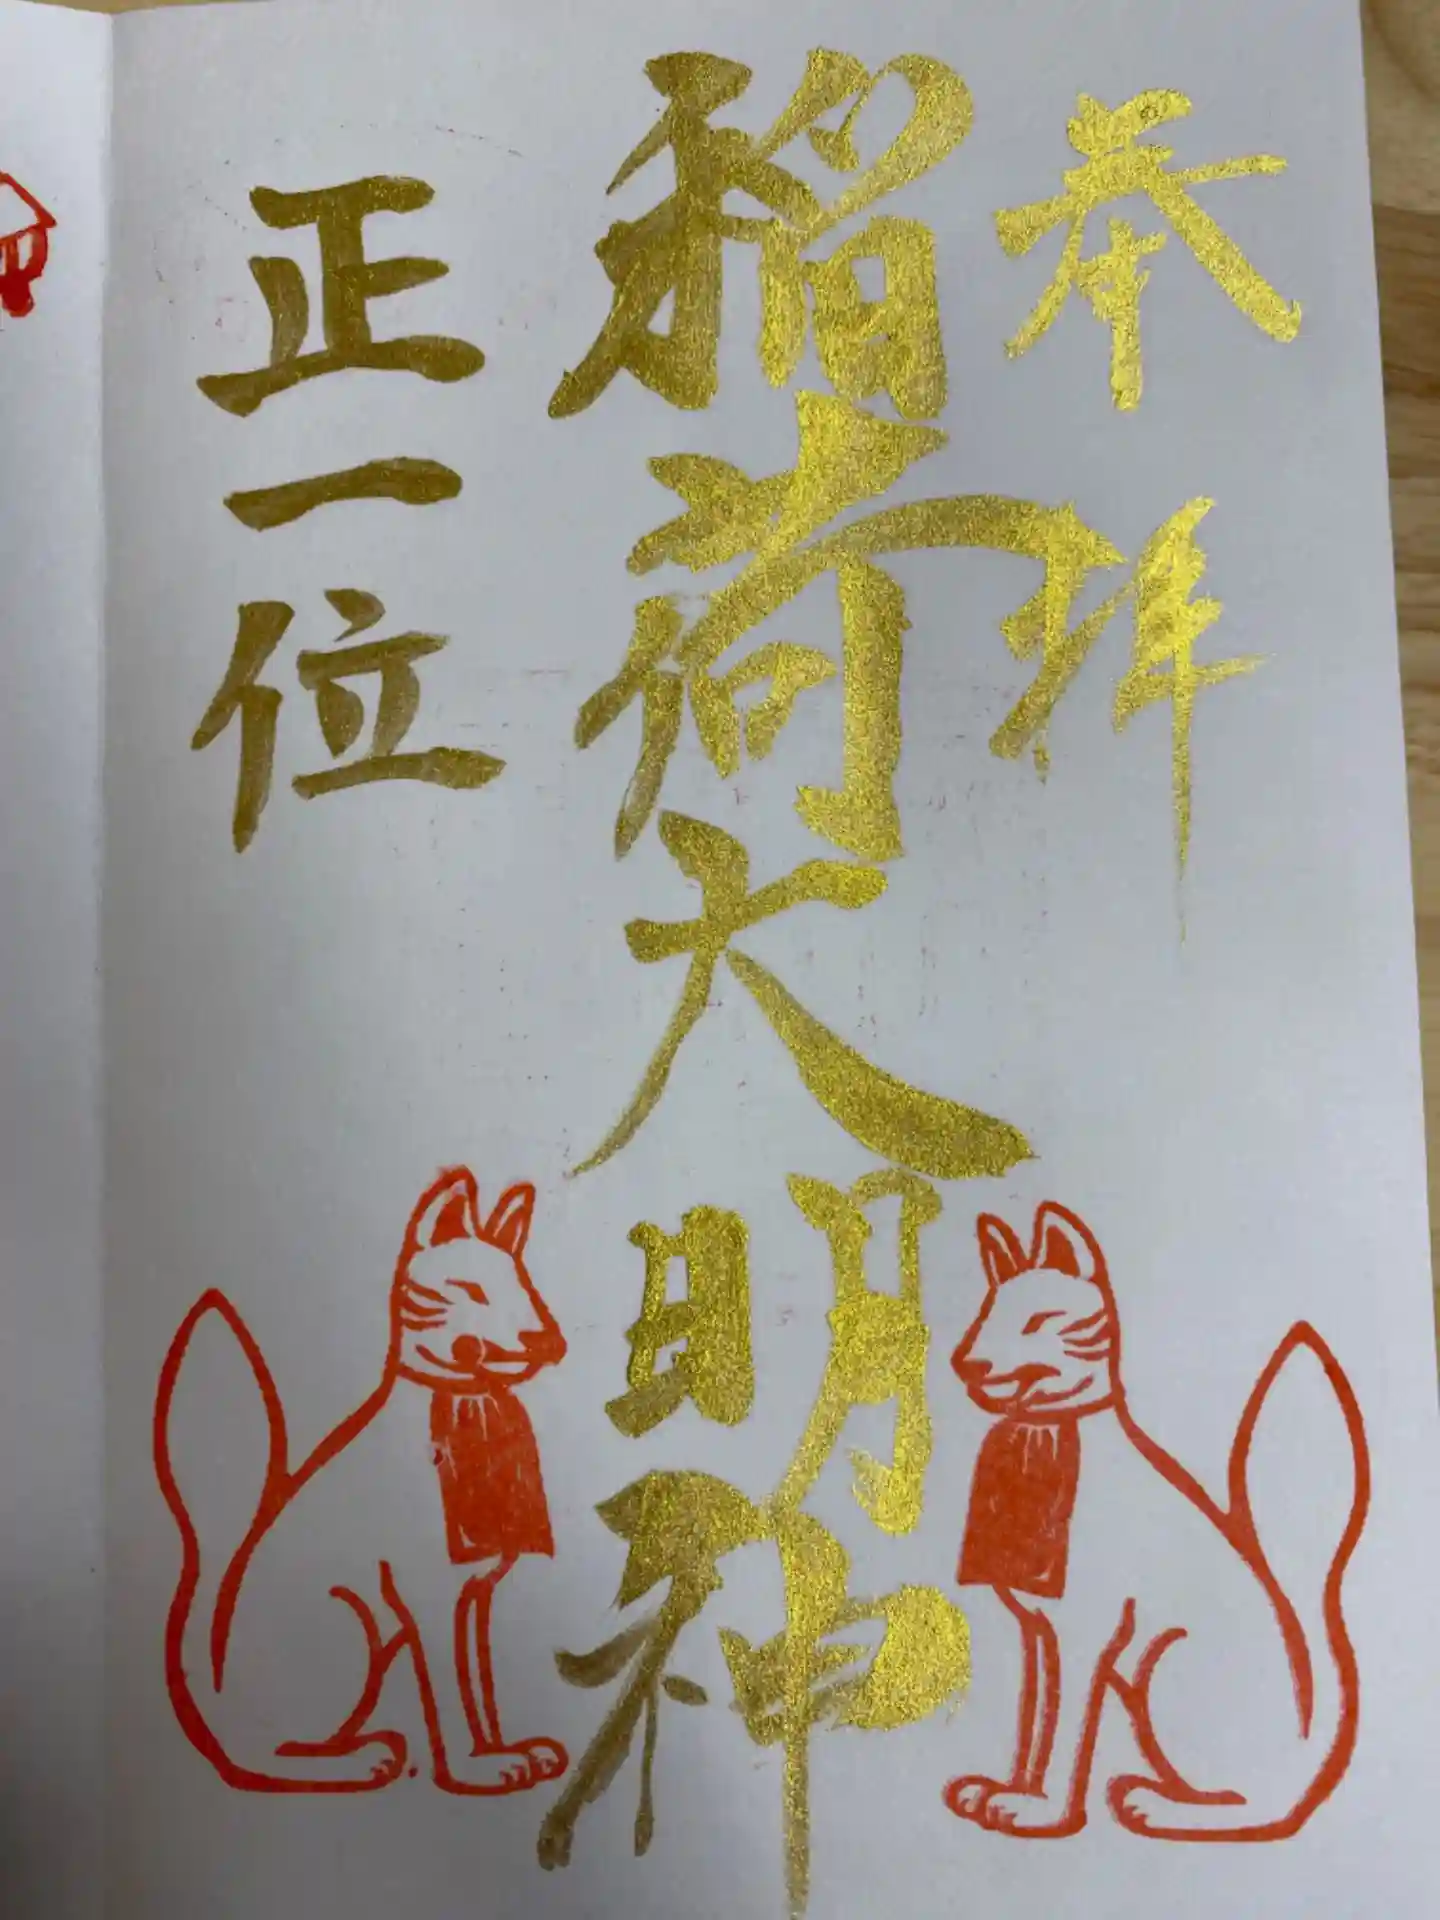 奉拝
稲荷大明神
正一位